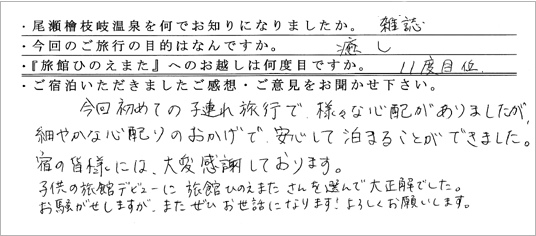 ・尾瀬檜枝岐温泉を何でお知りになりましたか。 雑誌
・今回のご旅行の目的はなんですか。 癒し
・『旅館ひのえまた』へのお越しは何度目ですか。 11度目位.
・ご宿泊いただきましたご感想・ご意見をお聞かせ下さい。
今回初めての子連れ旅行で、様々な心配がありましたが、
細やかな心配りのおかげで、安心して泊まることができました。
宿の皆様には、大変感謝しております。
子供の旅館デビューに旅館ひのえまたさんを選んで大正解でした。
お騒がせしますが、またぜひお世話になります!よろしくお願いします。